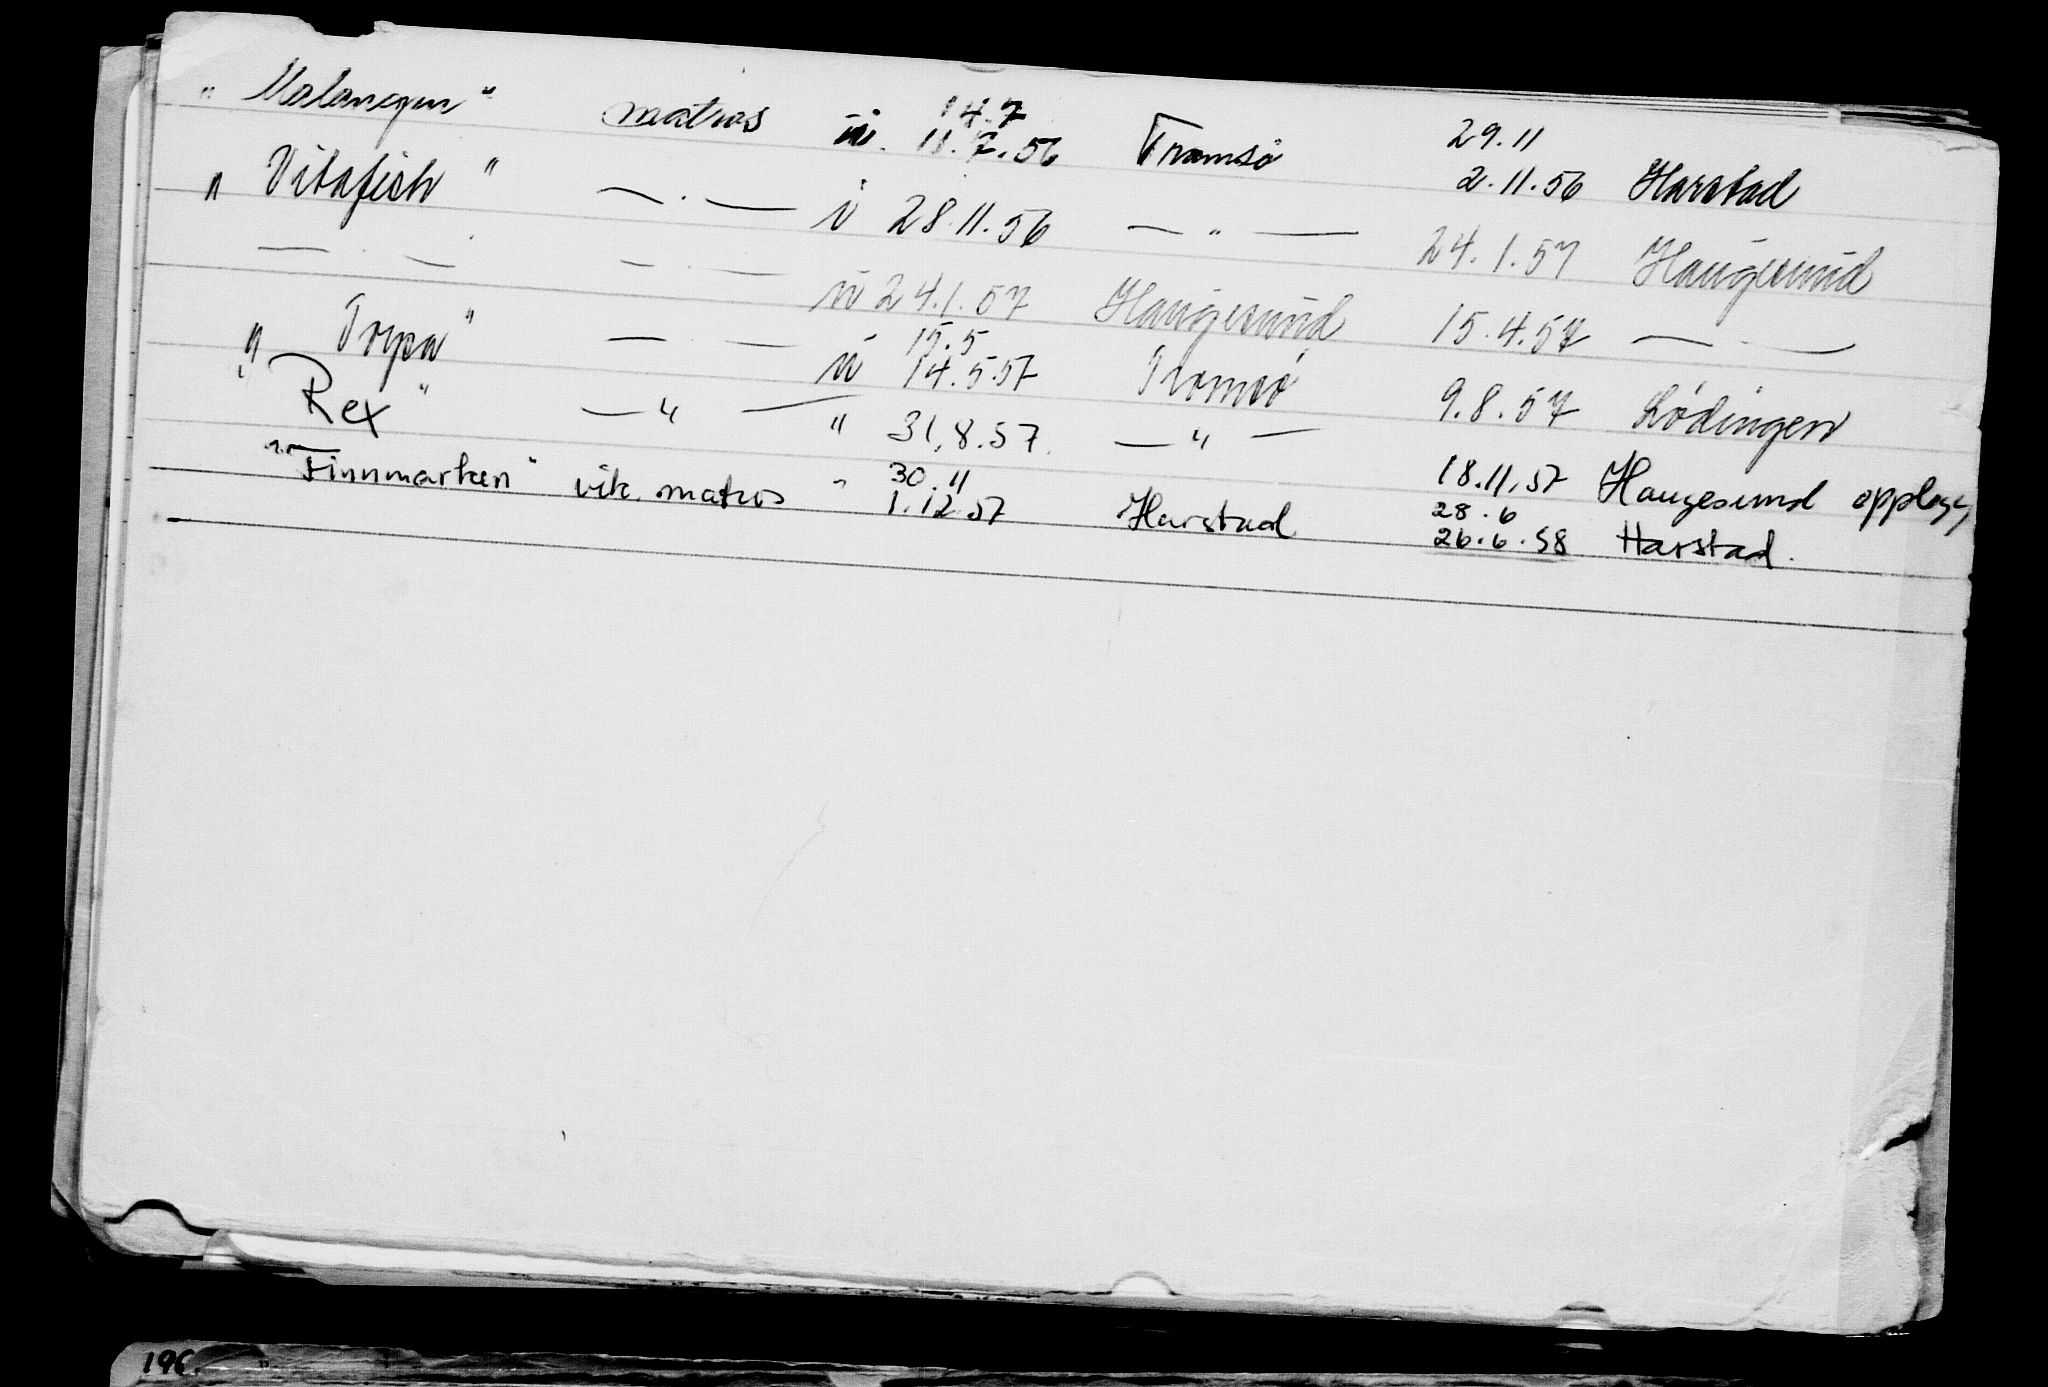 " Malangen " matros u. 14.7 11.7.56 Tromsø 29.11 2.11.56 Harstad
" Vitafish " — . — u 28.11.56 — " — 24.1.57 Haugesund
— . — — . — u 24.1.57 Haugesund 15.4.57 — . —
" Torpa " — — u 15.5 14.5.57 Tromsø 9.8.57 Lødingen
" Rex " — " — " 31.8.57. — " — 18.11.57 Haugesund opplagg
" Finnmarken " vik. matros " 30.11 1.12.57 Harstad 28.6 26.6.58 Harstad.
196.